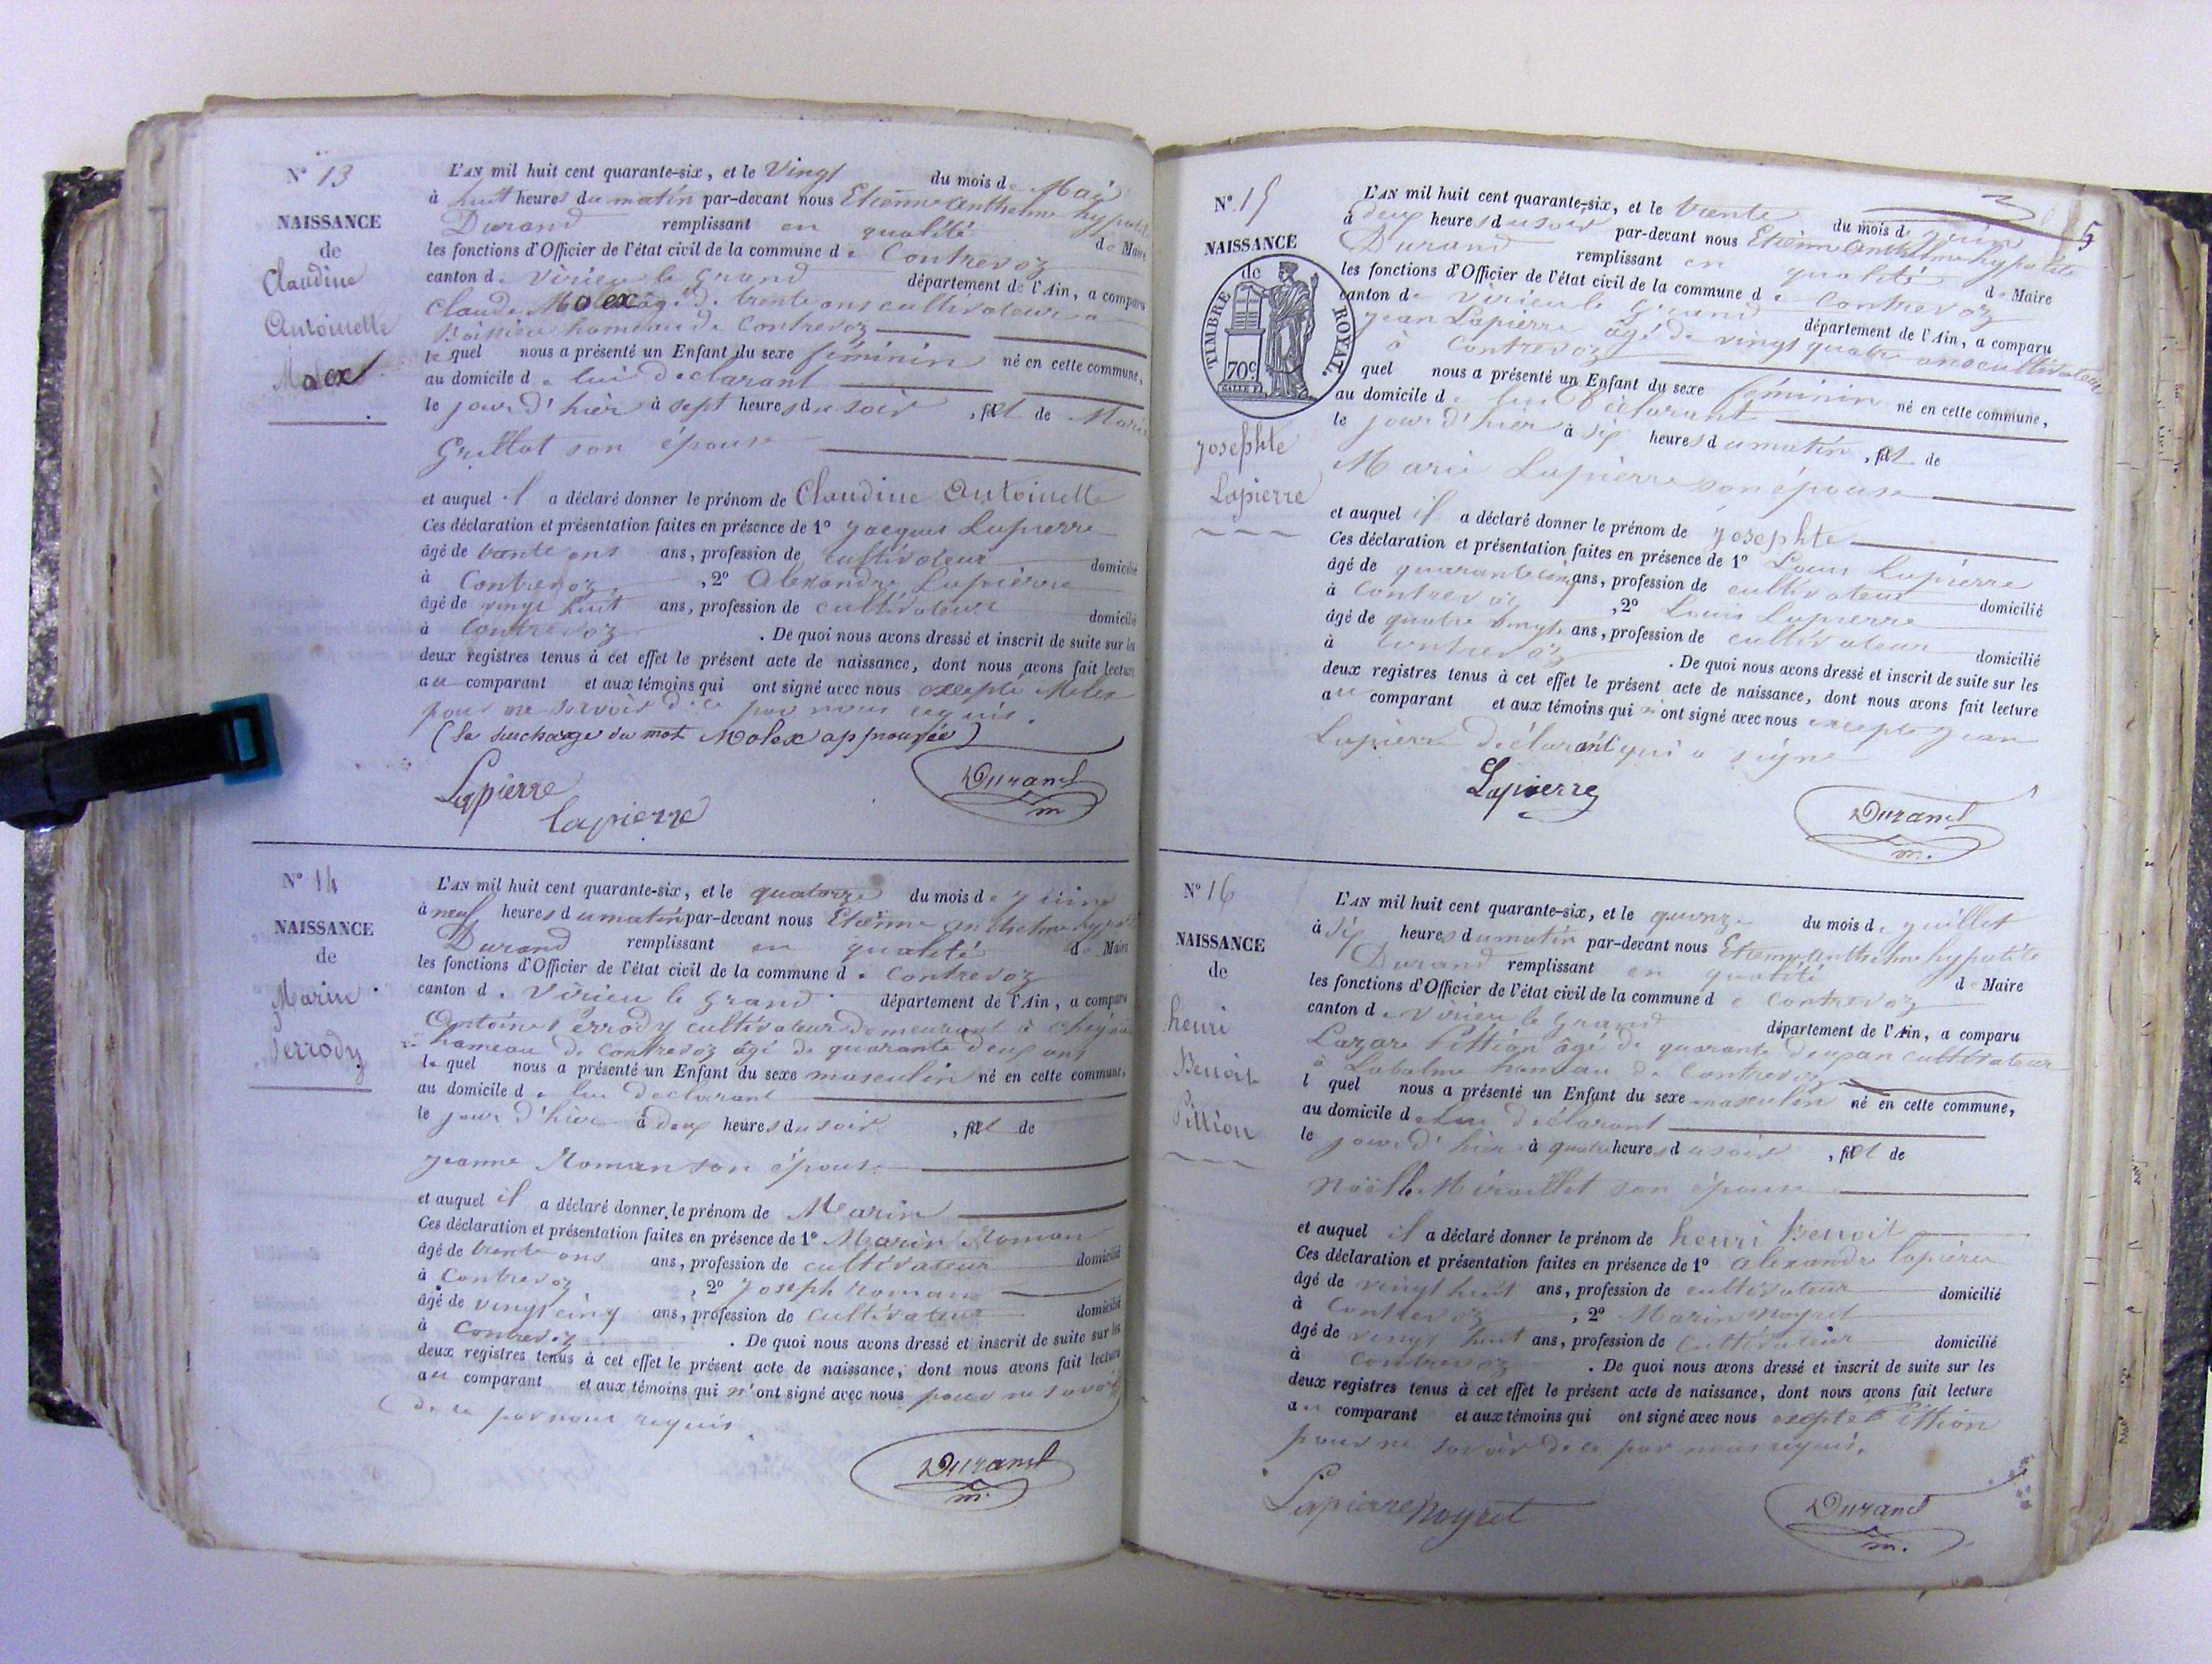 N° 13
NAISSANCE
de
Claudine
Antoinette
Molex
L'AN mil huit cent quarante-six, et le Vingt du mois de Mai
à huit heures du matin par-devant nous Etienne Anthelme hypolite
Durand remplissant en qualité de Maire
les fonctions d'Officier de l'état civil de la commune de Contrevoz
canton de Virieu le Grand département de l'Ain, a comparu
Claude Molex âgé de trente ans cultivateur à
hameau de Contrevoz
le quel nous a présenté un Enfant du sexe féminin né en cette commune,
au domicile de lui déclarant
le jour d'hier à sept heures du soir, et de Marie
Grillot son épouse
et auquel il a déclaré donner le prénom de Claudine Antoinette
Ces déclaration et présentation faites en présence de 1° Jacques Lapierre
âgé de trente ans ans, profession de cultivateur domicilié
à Contrevoz, 2° Alexandre Lapierre
âgé de vingt huit ans, profession de cultivateur domicilié
à Contrevoz. De quoi nous avons dressé et inscrit de suite sur les
deux registres tenus à cet effet le présent acte de naissance, dont nous avons fait lecture
au comparant et aux témoins qui ont signé avec nous excepté Molex
pour ne savoir de ce par nous requis.
(la surcharge du mot Molex approuvée)
Lapierre
Lapierre
Durand
m
N° 14
NAISSANCE
de
Marin
Perrody
L'AN mil huit cent quarante-six, et le quatorze du mois de juin
à neuf heures du matin par-devant nous Etienne anthelme hypolite
Durand remplissant en qualité de Maire
les fonctions d'Officier de l'état civil de la commune de Contrevoz
canton de Virieu le Grand département de l'Ain, a comparu
Antoine Perrody cultivateur demeurant à
hameau de Contrevoz âgé de quarante deux ans
le quel nous a présenté un Enfant du sexe masculin né en cette commune,
au domicile de lui déclarant
le jour d'hier à deux heures du soir, et de
jeanne Roman son épouse
et auquel il a déclaré donner le prénom de Marin
Ces déclaration et présentation faites en présence de 1° Marin Roman
âgé de trente ans ans, profession de cultivateur domicilié
à Contrevoz, 2° Joseph Roman
âgé de vingt cinq ans, profession de cultivateur domicilié
à Contrevoz. De quoi nous avons dressé et inscrit de suite sur les
deux registres tenus à cet effet le présent acte de naissance, dont nous avons fait lecture
au comparant et aux témoins qui n'ont signé avec nous pour ne savoir
de ce par nous requis.
Durand
m.
3
5
N° 15
NAISSANCE
de
TIMBRE ROYAL.
70c
Josephte
Lapierre
L'AN mil huit cent quarante-six, et le trente du mois de juin
à deux heures du soir par-devant nous Etienne Anthelme hypolite
Durand remplissant en qualité de Maire
les fonctions d'Officier de l'état civil de la commune de Contrevoz
canton de Virieu le Grand département de l'Ain, a comparu
jean Lapierre âgé de vingt quatre ans cultivateur
à Contrevoz
quel nous a présenté un Enfant du sexe féminin né en cette commune,
au domicile de lui déclarant
le jour d'hier à six heures du matin, et de
Marie Lapierre son épouse
et auquel il a déclaré donner le prénom de Josephte
Ces déclaration et présentation faites en présence de 1° Louis Lapierre
âgé de quarante cinq ans, profession de cultivateur domicilié
à Contrevoz, 2° Louis Lapierre
âgé de quatre vingts ans, profession de cultivateur domicilié
à Contrevoz. De quoi nous avons dressé et inscrit de suite sur les
deux registres tenus à cet effet le présent acte de naissance, dont nous avons fait lecture
au comparant et aux témoins qui n'ont signé avec nous excepté jean
Lapierre déclarant qui a signé
Lapierre
Durand
m.
N° 16
NAISSANCE
de
henri
Benoit
Pittion
L'AN mil huit cent quarante-six, et le quinze du mois de juillet
à six heures du matin par-devant nous Etienne anthelme hypolite
Durand remplissant en qualité de Maire
les fonctions d'Officier de l'état civil de la commune de Contrevoz
canton de Virieu le Grand département de l'Ain, a comparu
Lazare Pittion âgé de quarante deux an cultivateur
à Labalme hameau de Contrevoz
l quel nous a présenté un Enfant du sexe masculin né en cette commune,
au domicile de lui déclarant
le jour d'hier à quatre heures du soir, et de
son épouse
et auquel il a déclaré donner le prénom de henri Benoit
Ces déclaration et présentation faites en présence de 1° alexandre lapierre
âgé de vingt huit ans, profession de cultivateur domicilié
à Contrevoz, 2° Marin Noyret
âgé de vingt huit ans, profession de cultivateur domicilié
à Contrevoz. De quoi nous avons dressé et inscrit de suite sur les
deux registres tenus à cet effet le présent acte de naissance, dont nous avons fait lecture
au comparant et aux témoins qui ont signé avec nous excepté Pittion
pour ne savoir de ce par nous requis.
Lapierre Noyret
Durand
m.